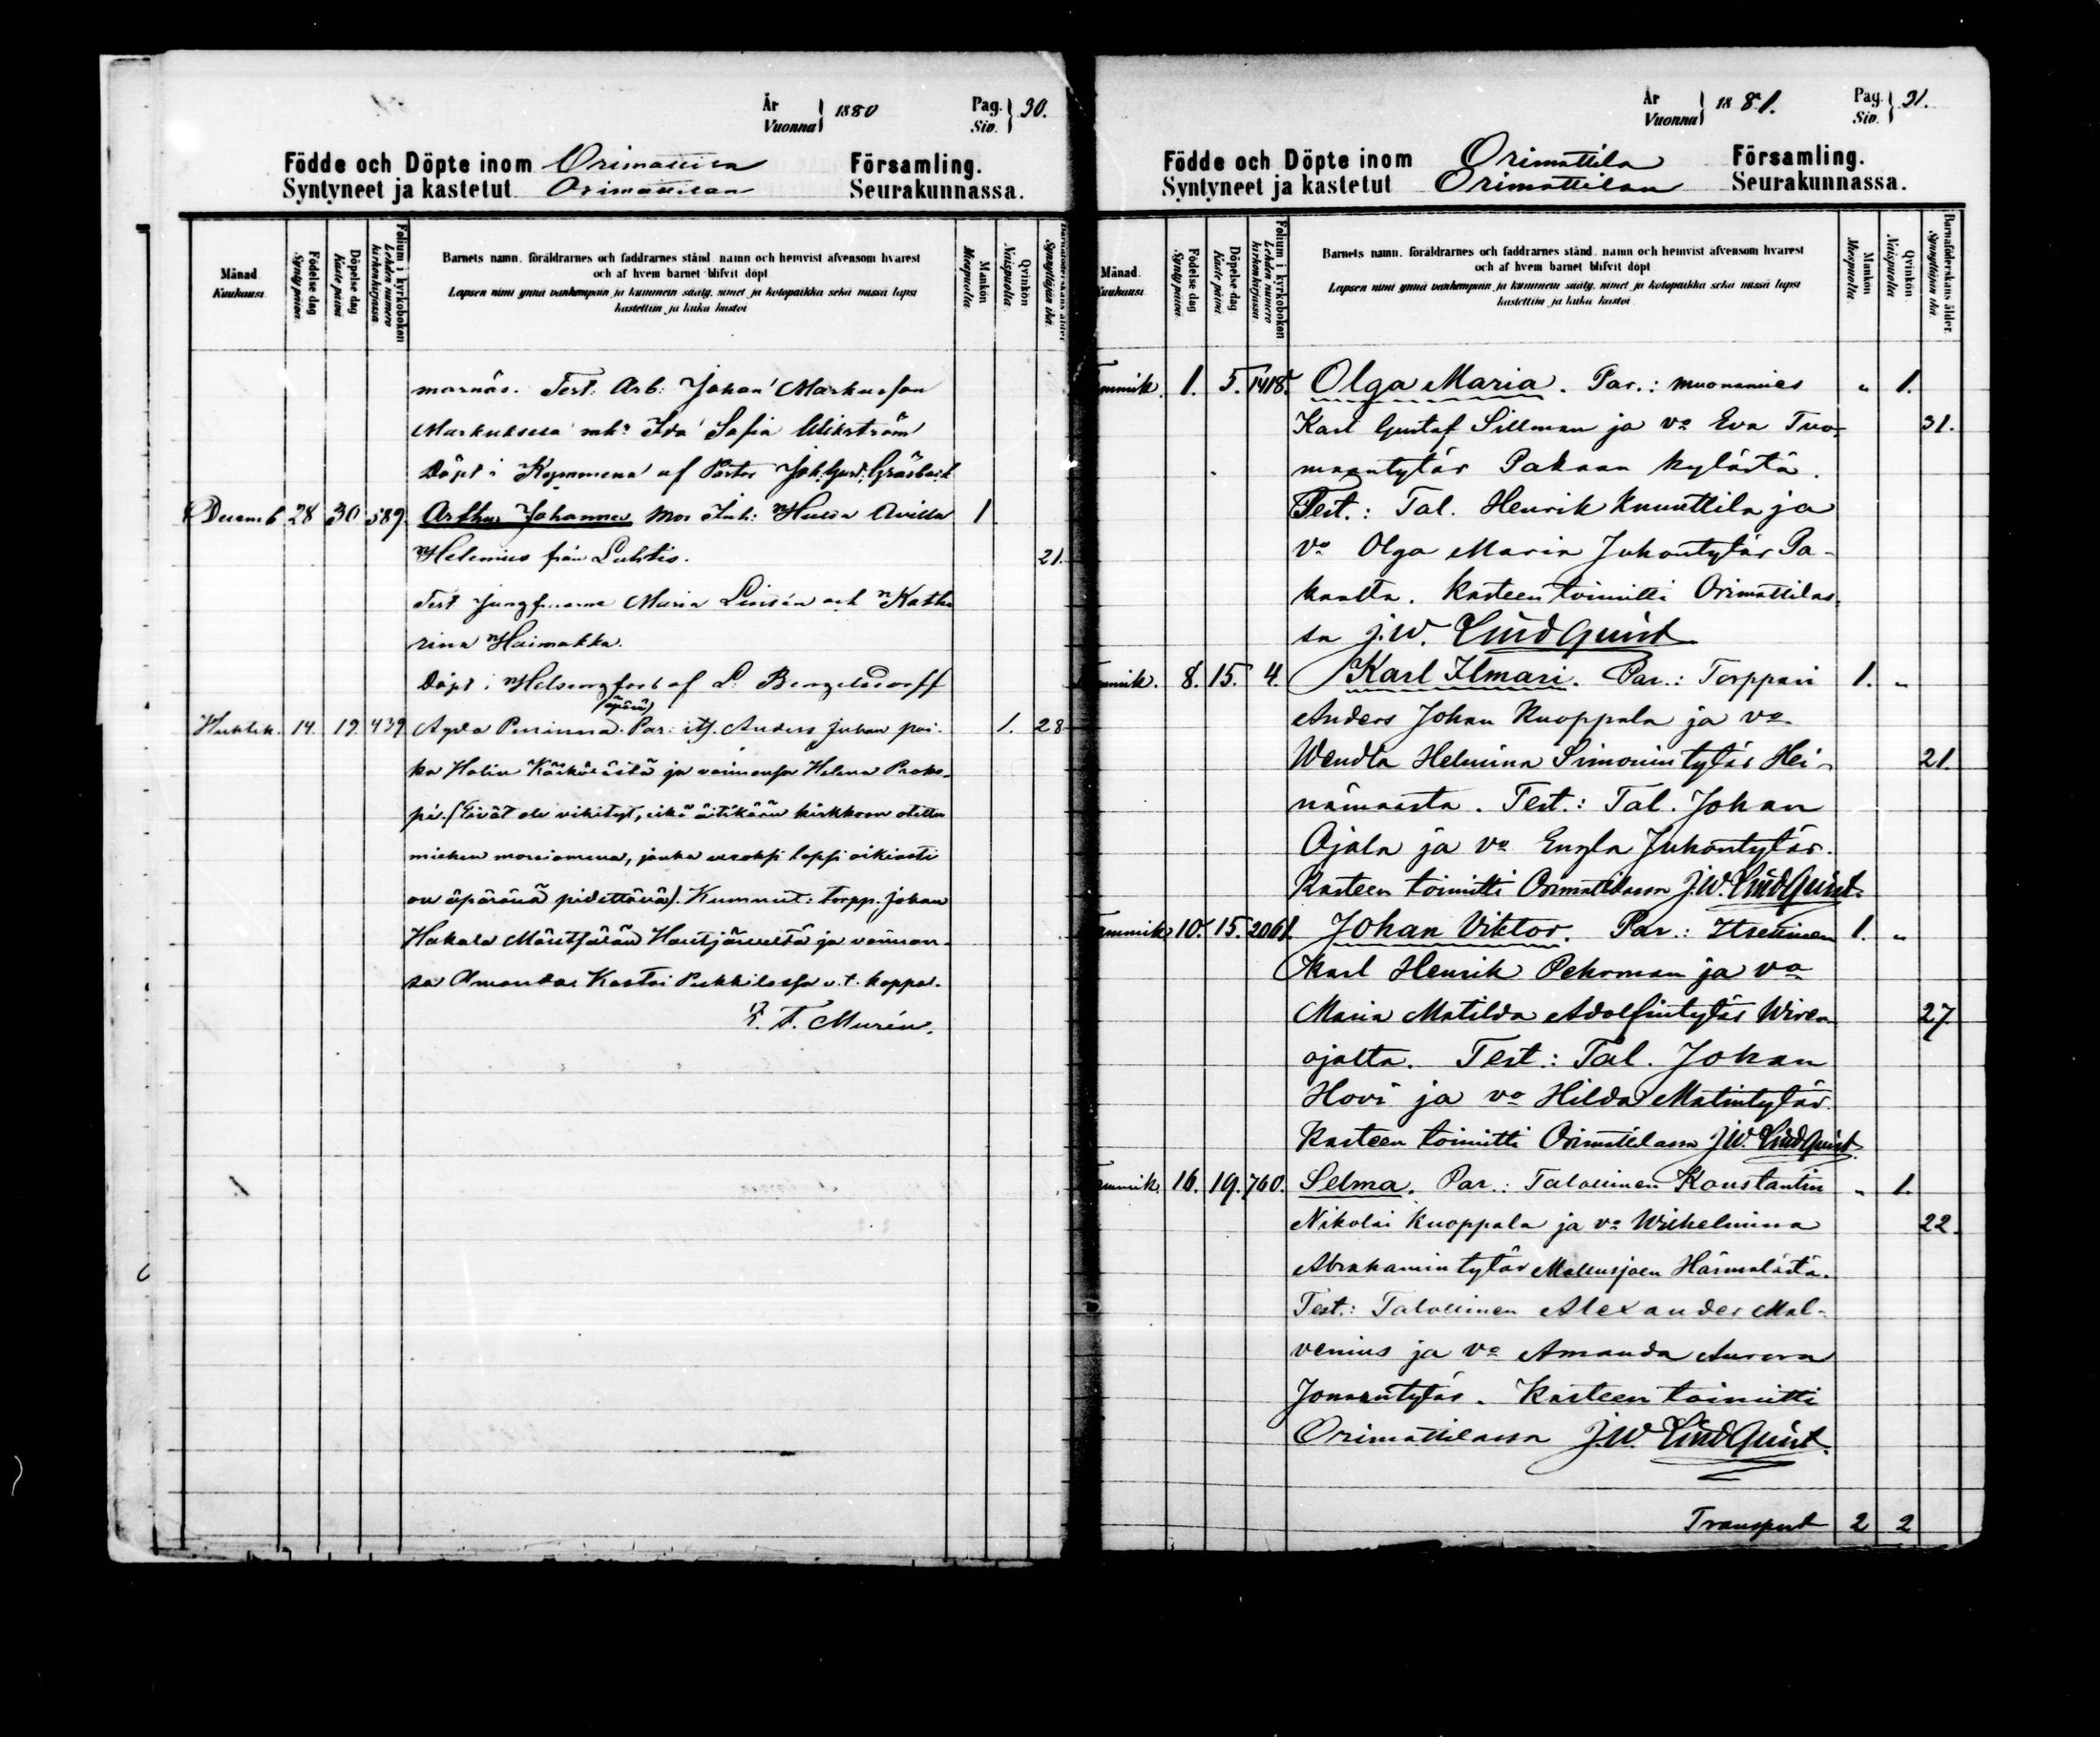 År
Vuonna 1880
Pag.
Siv. 30.
Födde och Döpte inom Orimattila Församling.
Syntyneet ja kastetut Orimattilan Seurakunnassa.
Månad. Kuukausi.
Födelse dag Synty päivä.
Döpelse dag Kaste päivä
Folium i kyrkoboken Lehden numero kirkonkirjassa
Barnets namn, föräldrarnes och faddrarnes stånd, namn och hemvist äfvensom hvarest
och af hvem barnet blifvit döpt
Lapsen nimi ynnä vanhempain ja kummein sääty, nimet ja kotopaikka sekä missä lapsi
kastettiin ja kuka kastoi
Mankön Miespuolta.
Qvinkön Naispuolta
Barnaföderskans ålder Synnyttäjän ikä.
marnäs. Test: Arb: Johan Markusson
Markuksela mh: Ida Sofia Wikström
Döpt i Kymmene af Pastor Joh. Gust. Gräsbeck
Decemb 28 30 589. Arthur Johannes Mor Inh: Hulda Avilla 1
Helenius från Luhtis. 21.
Test Jungfruarna Maria Linsén och Katha
rina Haimakka.
Döpt i Helsingfors af L. Bengelsdorff
(äpärä)
Huhtik. 14. 19. 439 Agda Pauliina. Par: itj. Anders Juhan poi- 1. 28
ka Halin Käkelästä ja vaimonsa Helena Proko-
pi. (Eivät ole vihityt, eikä äitikään kirkkoon otettu
miehen morsiamena, jonka vuoksi lapsi oikiasti
on äpäränä pidettävä). Kummit: torpp. Johan
Hakala Mäntsälän Hautjärveltä ja vaimon-
sa Amanda. Kastoi Pukkilassa v.t. kappal.
F. Murén.
År
Vuonna 1881.
Pag.
Siv. 31.
Födde och Döpte inom Orimattila Församling.
Syntyneet ja kastetut Orimattilan Seurakunnassa.
Månad. Kuukausi.
Födelse dag Synty päivä.
Döpelse dag Kaste päivä
Folium i kyrkoboken Lehden numero kirkonkirjassa.
Barnets namn, föräldrarnes och faddrarnes stånd, namn och hemvist äfvensom hvarest
och af hvem barnet blifvit döpt
Lapsen nimi ynnä vanhempain ja kummein sääty, nimet ja kotopaikka sekä missä lapsi
kastettiin ja kuka kastoi.
Mankön Miespuolta.
Qvinkön Naispuolta
Barnaföderskans ålder. Synnyttäjän ikä.
Tammik. 1. 5. 1418. Olga Maria. Par.: muonamies " 1.
Karl Gustaf Sillman ja vo Eva Tuo- 31.
maantytär Pakaan kylästä.
Test.: Tal. Henrik Knuuttila ja
vo Olga Maria Juhontytär Pa-
kaalta. Kasteen toimitti Orimattilas-
sa J.W. Lindquist
Tammik. 8. 15. 4. Karl Ilmari. Par.: Torppari 1. "
Anders Johan Kuoppala ja vo
Wendla Helmina Simonintytär Hei- 21.
nämaasta. Test.: Tal. Johan
Ajala ja vo Engla Juhontytär.
Kasteen toimitti Orimattilassa J.W. Lindquist.
Tammik 10. 15. 2061. Johan Viktor. Par.: Itsellinen 1. "
Karl Henrik Pehrman ja vo
Maria Matilda Adolfintytär Wiren- 27.
ojalta. Test.: Tal. Johan
Hovi ja vo Hilda Matintytär.
Kasteen toimitti Orimattilassa J.W. Lindquist.
Tammik. 16. 19. 760. Selma. Par.: Talollinen Konstantin " 1.
Nikolai Kuoppala ja vo Wilhelmina 22.
Abrahamintytär Mallusjoen Härmälästä.
Test.: Talollinen Alexander Mal-
venius ja vo Amanda Aurora
Jonaantytär. Kasteen toimitti
Orimattilassa J.W. Lindquist.
Transport 2 2